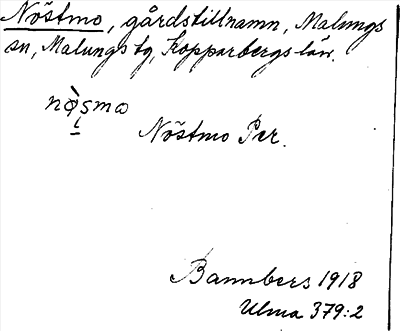 Nöstmo, gårdstillnamn, Malungs
sn, Malungs tg, Kopparbergs län.
Nöstmo Per.
Bannbers 1918
Ulma 379:2